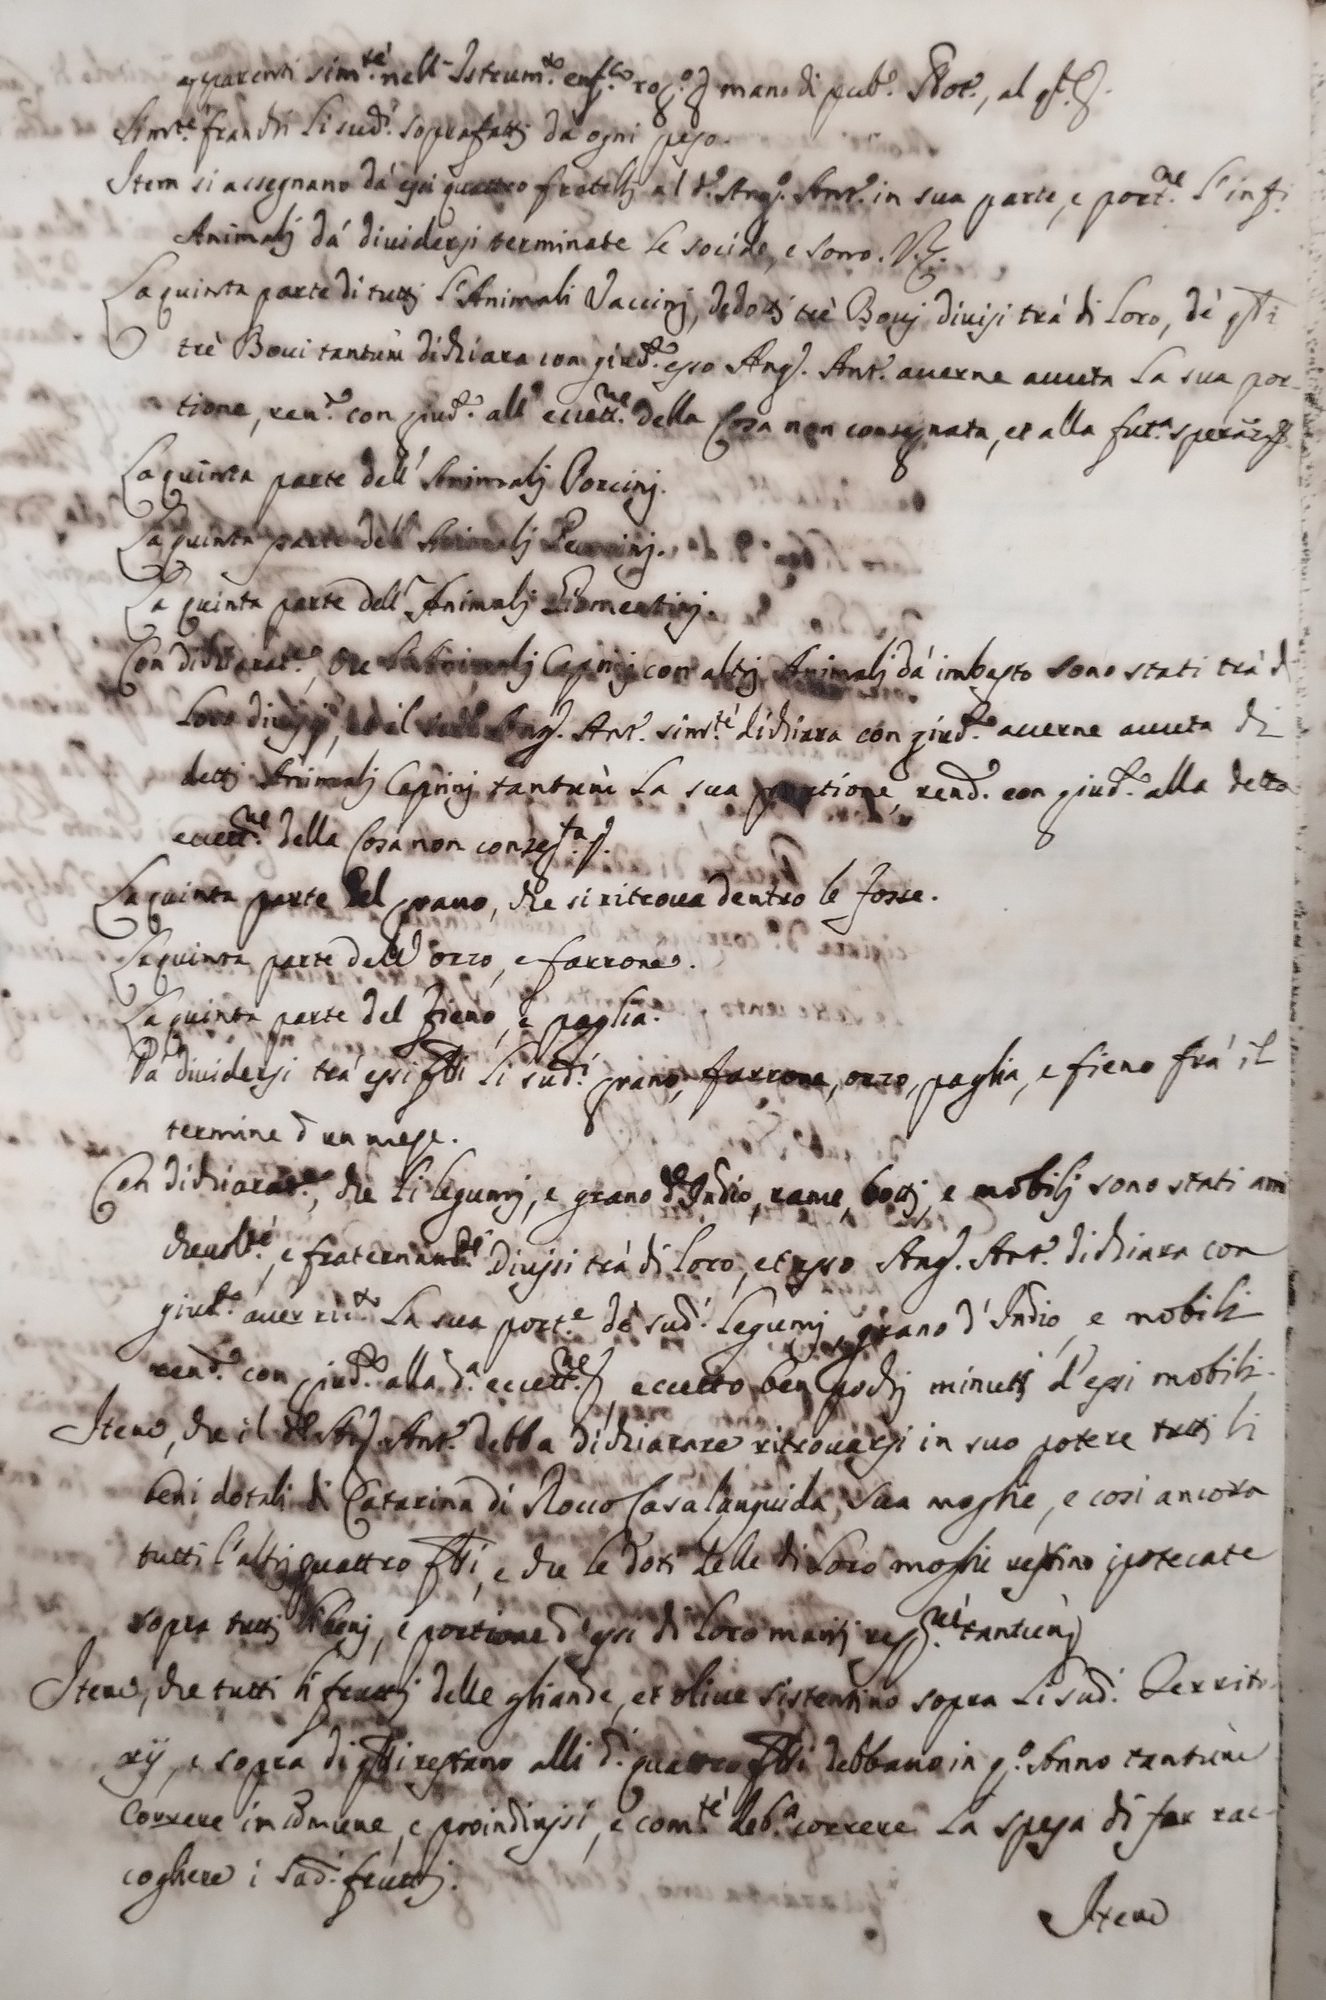 apparenti sim.te nell'Istrum.to rog.o p mano di pub.o Not.o, al q.l p.
Sim.te franchi li sud.i soprafatti da ogni peso.
Item si assegnano da essi quattro fratelli al d.o Ang.o Ant.o in sua parte, e port.ne l'inf.i
Animalj da dividersi terminate le socide, e sono. V.z.
La quinta parte di tutti l'Animali Vaccinj, dedotti trè Bovj divisi trà di loro, de q.sti
trè Bovi tantum dichiara con giud.o esso Ang. Ant.o averne avuta la sua por
tione, ren.do con giud.o all'eccett.ne della Cosa non consegnata, et alla fut.a
La quinta parte dell'Animalj Porcinj.
La quinta parte dell'Animalj Pecorinj.
La quinta parte dell'Animalj Giomentinj.
Con dichiarat.e, che l'Animalj Caprinj con altrj Animalj da imbasto sono stati trà d
Loro divisi, et il sud.o Ang. Ant.o sim.te dichiara con giud.o averne avuta di
detti Animalj Caprinj tantum la sua portione, rend.o con giud.o alla detta
eccett.ne della Cosa non conseg.ta p.
La quinta parte del grano, che si ritrova dentro le fosse.
La quinta parte dell'orzo, e farrone.
La quinta parte del fieno, e paglia.
Da dividersi trà essi f.lli li sud.i grano, farrone, orzo, paglia, e fieno frà il
termine d'un mese.
Con dichiarat.e, che li legumj, e grano d'Indio, rame, bottj, e mobilj sono stati ami
chevol.te, e fraternam.te divisi trà di loro, et esso Ang. Ant.o dichiara con
giud.o aver ric.to la sua port.e de sud.i legumj, grano d'Indio, e mobili
rend.o con giud.o alla d.a eccett.ne p, eccetto ben pochj minutj d'essi mobili.
Item, che il d.o Ang. Ant.o debba dichiarare ritrovarsi in suo potere tuttj li
beni dotali di Catarina di Rocco Casalanguida sua moglie, e così ancora
tutti l'altrj quattro f.lli, e che le doti delle di loro moglie restino ipotecate
sopra tuttj li benj, e portione d'essi di loro maritj resp.ne tantum
Item, che tutti li fruttj delle ghiande, et olive sistentino sopra li sud.i Territo
rij, e sopra di q.lli restano alli d.i quattro f.lli debbano in q.o Anno tantum
correre in comune, e proindivisi, e com.te deb.a correre la spesa di far rac
cogliere i sud.i fruttj.
Item